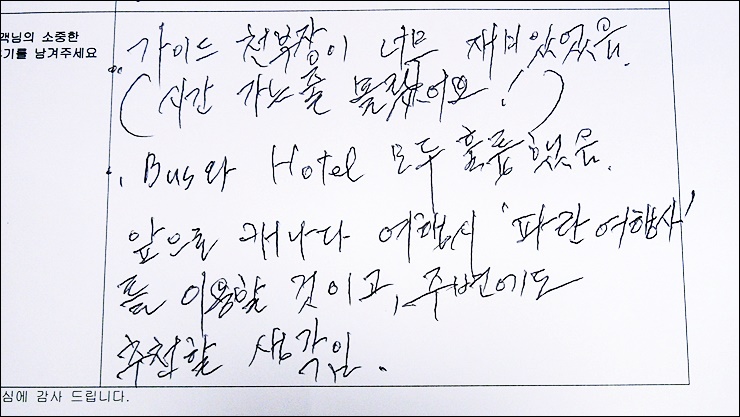 객님의 소중한
기를 남겨주세요
가이드 천부장이 너무 재미 있었음.
(시간 가는줄 몰랐어요!)
. Bus와 Hotel 모두 훌륭했음.
앞으로 캐나다 여행시 '파란여행사'
를 이용할 것이고, 주변에도
추천할 생각임.
심에 감사 드립니다.